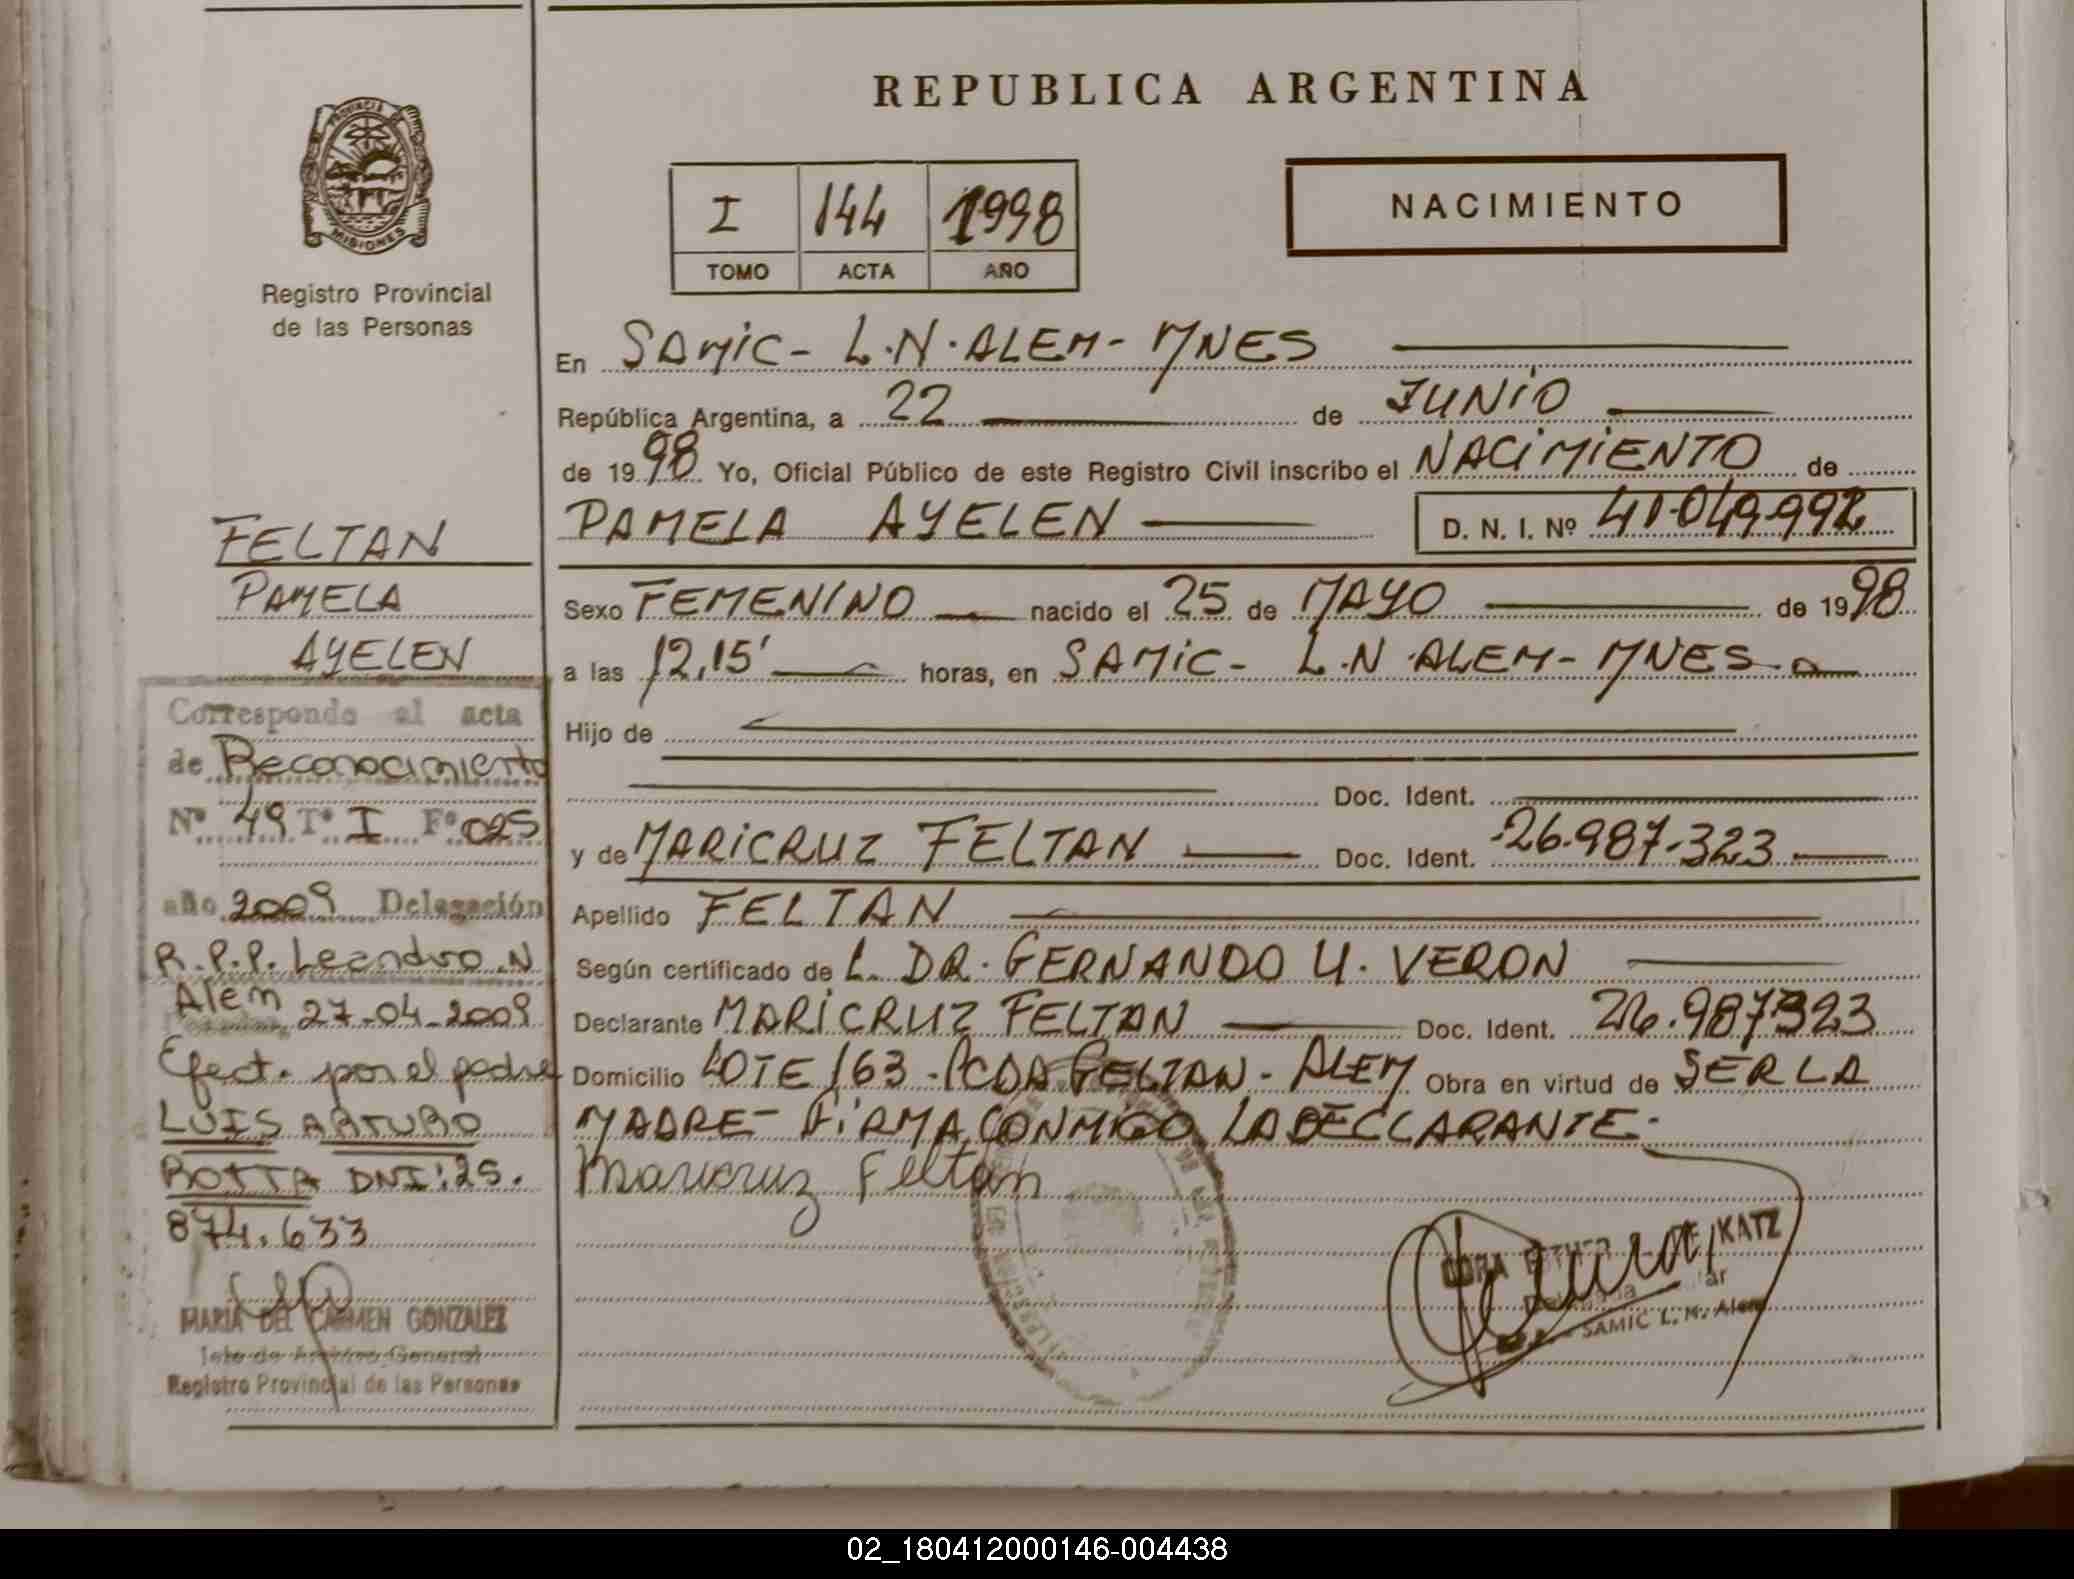 REPUBLICA ARGENTINA
PROVINCIA DE MISIONES
Registro Provincial
de las Personas
I 144 1998
TOMO ACTA AÑO
NACIMIENTO
En SAMIC - L.N.ALEM - MNES
República Argentina, a 22 de JUNIO
de 1998 Yo, Oficial Público de este Registro Civil inscribo el NACIMIENTO de
PAMELA AYELEN D. N. I. Nº 41.049.992
Sexo FEMENINO nacido el 25 de MAYO de 1998
a las 12,15' horas, en SAMIC - L.N.ALEM - MNES.
Hijo de
Doc. Ident.
y de MARICRUZ FELTAN Doc. Ident. 26.987.323
Apellido FELTAN
Según certificado de L. DR. GERNANDO U. VERON
Declarante MARICRUZ FELTAN Doc. Ident. 26.987323
Domicilio LOTE 163 - PCDA FELTAN - ALEM Obra en virtud de SER LA
MADRE - FIRMA CONMIGO LA DECLARANTE.-
Maricruz Feltan
KATZ
SAMIC L. N. Alem
FELTAN
PAMELA
AYELEN
Corresponde al acta
de Reconocimiento
Nº 49 Tº I Fº 025
año 2009 Delegación
R.P.P. Leandro.N
Alem 27-04-2009
Efect. por el padre
LUIS ARTURO
BOTTA DNI:25.
874.633
MARIA DEL CARMEN GONZALEZ
Jefe de Archivo General
Registro Provincial de las Personas
02_180412000146-004438